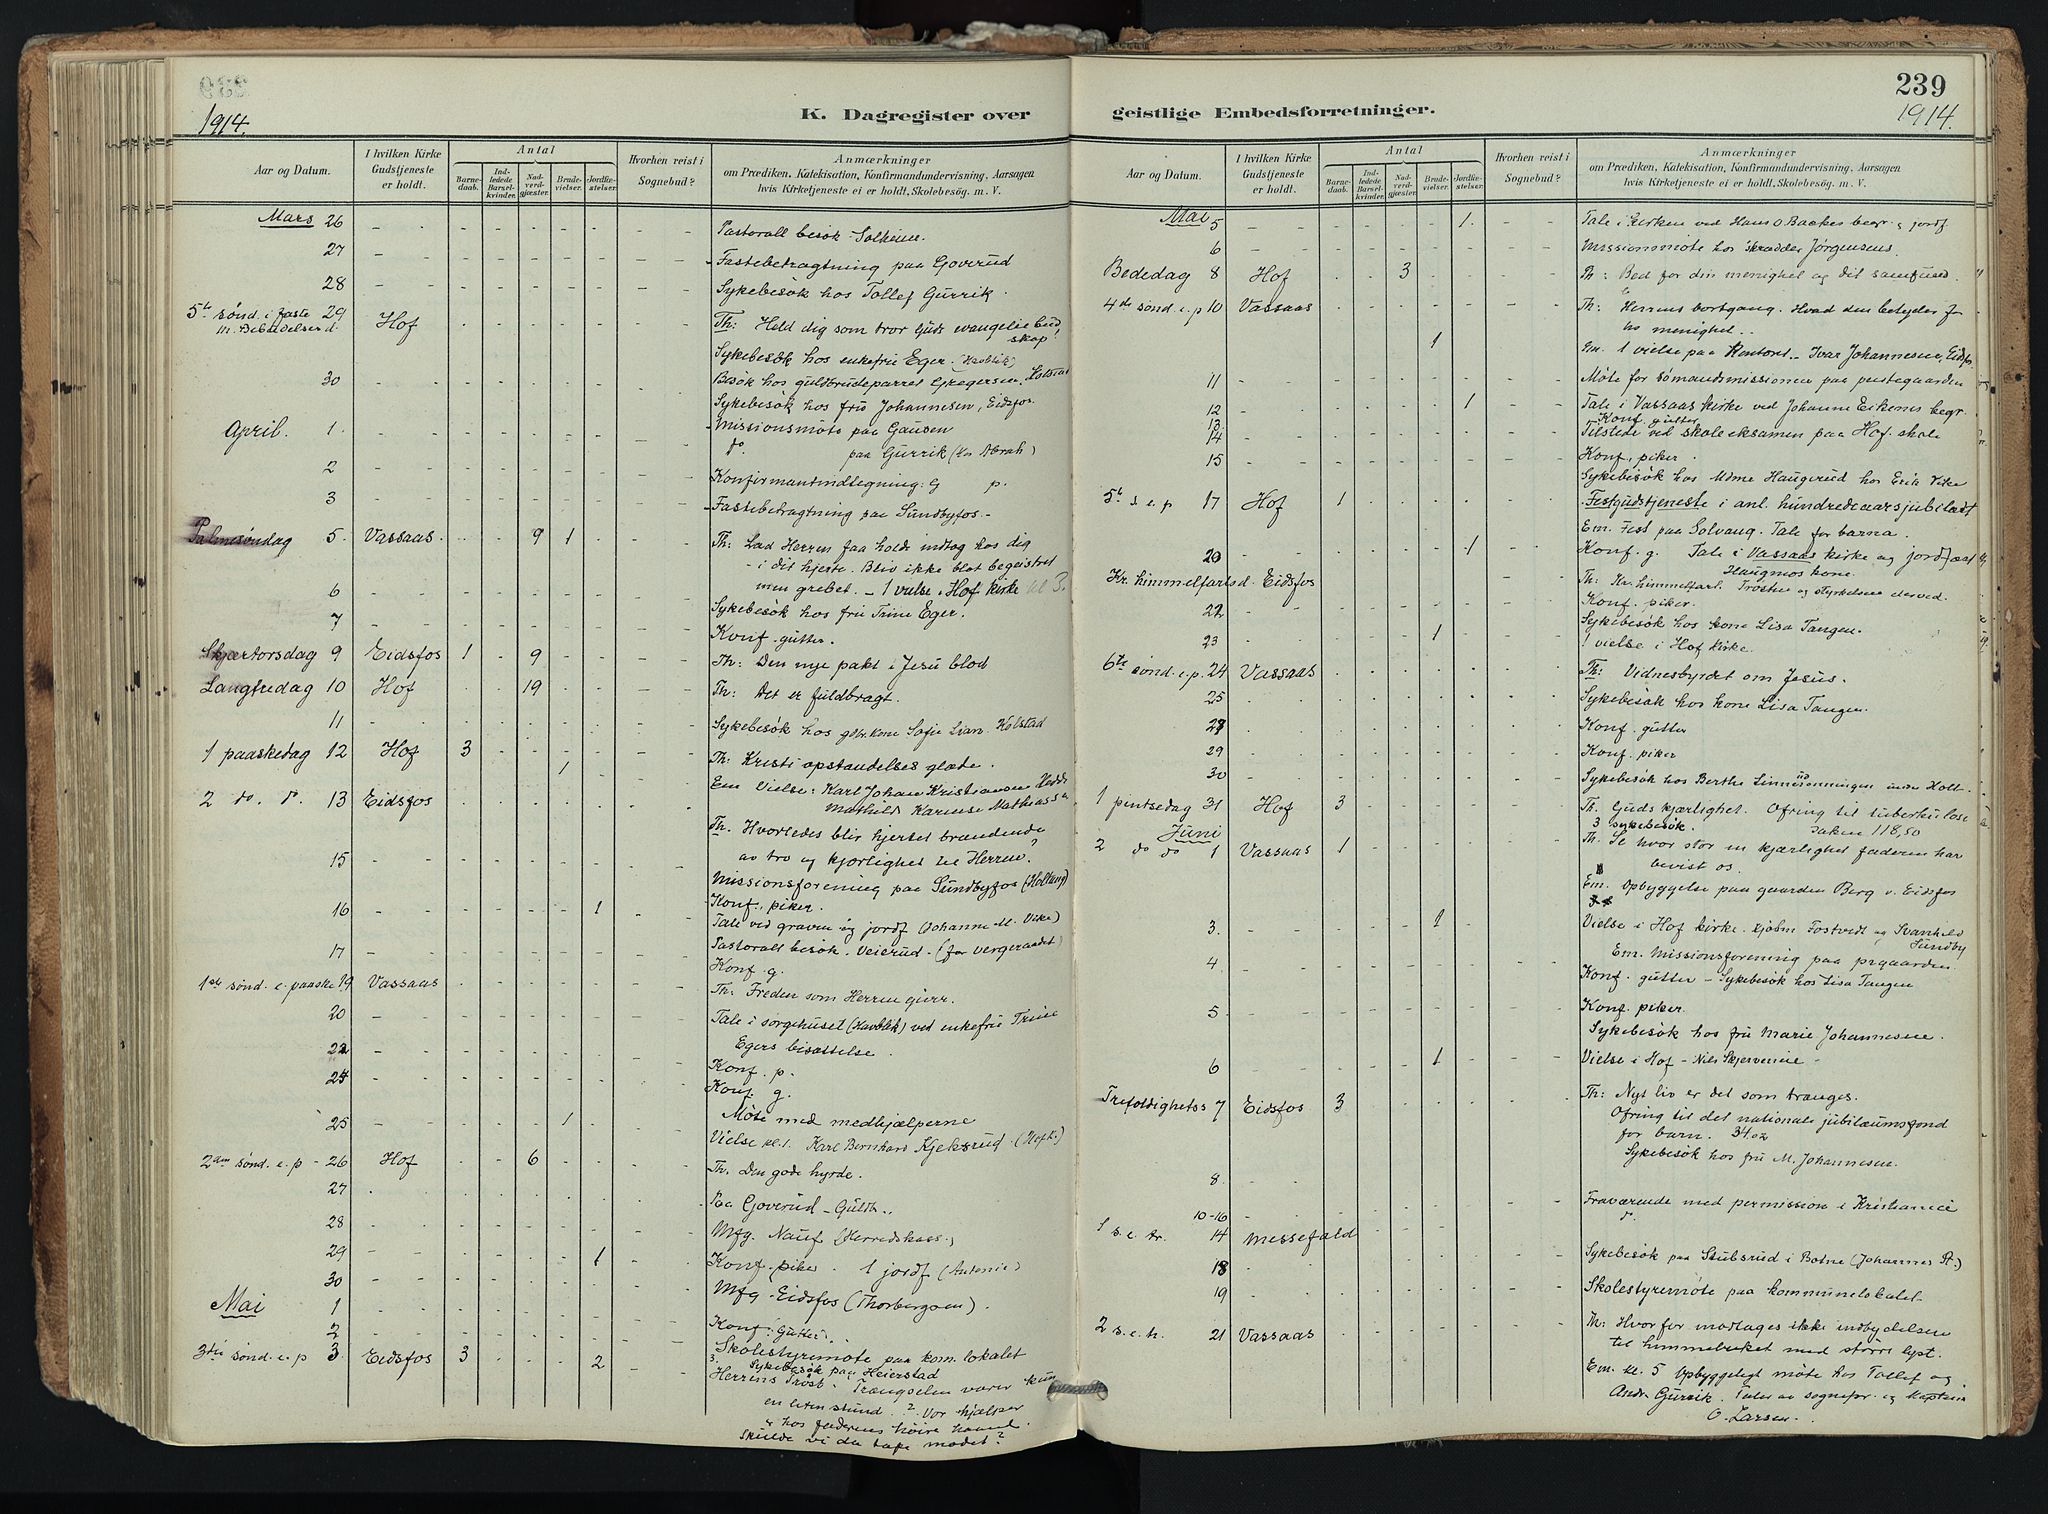 239
1914.
1914.
K. Dagregister over
geistlige Embedsforretninger.
Aar og Datum.
I hvilken Kirke Gudstjeneste er holdt.
Antal
Barne-daab.
Ind-ledede Barsel-kvinder.
Nad-verd-gjæster.
Brude-vielser.
Jordfæ-stelser.
Hvorhen reist i Sognebud?
Anmærkninger
om Prædiken, Katekisation, Konfirmandundervisning, Aarsagen
hvis Kirketjeneste ei er holdt, Skolebesög. m. V.
Mars 26 Pastoralt besøk Solheim.
27 Fastebetragtning paa Goverud
28 Sykebesøk hos Tollef Gurrik.
5te sønd. i faste 29 Hof Th: Hold dig som tror Guds evangelie bud
m. Bebudelsesd. skap?
Sykebesøk hos enkefru Eger. (Havblik)
30 Besøk hos guldbrudeparret Gregersen,
Sykebesøk hos fru Johannesen, Eidsfos.
April. 1. Missionsmøte paa Gausen
do. paa Gurrik (hos Abrah)
2 Konfirmantindtegning: G p.
3 Fastebetragtning paa Sundbyfos.-
Palmesøndag 5. Vassaas 9 1 Th: Lad Herren faa holde indtog hos dig
- i dit hjerte. Bliv ikke blot begeistret
6 men grebet. - 1 vielse i Hof kirke kl 3.
7 Sykebesøk hos fru Trine Eger.
Konf. gutter.
Skjærtorsdag 9 Eidsfos 1 9 Th: Den nye pakt i Jesu blod
Langfredag 10 Hof 19 Th: Det er fuldbragt.
11 Sykebesøk hos gbr. kone Sofie Kolstad
1 paaskedag 12 Hof 3 Th: Kristi opstandelses glæde.
1 Em Vielse: Karl Johan Kristiansen
2 do. do. 13 Eidsfos Mathilde Karense Mathiassen
Th. Hvorledes blir hjertet brændende
15 av tro og kjærlighet til Herren?
Missionsforening paa Sundbyfos (Holtung)
16 1 Konf. piker.
Tale ved graven og jordf (Johanne M. Vike)
17 Pastoralt besøk. Veierud. (for vergeraadet)
Konf. g.
1ste sønd. e. paaske 19 Vassaas Th: Freden som Herren givr.
20 Tale i sørgehuset (Havblik) ved enkefru Trine
22 Egers bisættelse.
24 Konf. p.
Konf. g.
25 1 Møte med medhjælperne
Vielse kl. 1. Karl Bernhard Kjeksrud. (Hofk.)
2den sønd. e. p - 26 Hof 6 Th. Den gode hyrde.
27 Paa Goverud - Guldb.
28 Mfg. Nauf (Herredskass.)
29 1 Konf. piker. 1 jordf (Antonie)
30 Mfg. Eidsfos (Thorbergsen).
Mai 1
2 Konf: Gutter.
3die sønd. e. p 3. Eidsfos 3 2 Skolestyremøte paa kom. lokalet
3. Sykebesøk paa Heierstad
Herrens Trøst. Trængselen varer kun
en liten stund. ? Vor hjælper
er hos faderens høire haand.
Skulde vi da tape modet?
Aar og Datum.
I hvilken Kirke Gudstjeneste er holdt.
Antal
Barne-daab.
Ind-ledede Barsel-kvinder.
Nad-verd-gjæster.
Brude-vielser.
Jordfæ-stelser.
Hvorhen reist i Sognebud?
Anmærkninger
om Prædiken, Katekisation, Konfirmandundervisning, Aarsagen
hvis Kirketjeneste ei er holdt, Skolebesög. m. V.
Mai 5 1. Tale i kirken ved Hans O Baakes begr. og jordf.
6 Missionsmøte hos skrædder Jørgensens.
Bededag 8 Hof 3 Th: Bed for din menighet og dit samfund
4de sønd. e. p 10 Vassaas Th: Herrens bortgang. Hvad den betyder for
hs menighet..
1 Em. 1 vielse paa Kontoret - Ivar Johannesen, Eidsfos
11 Møte for sømandsmissionen paa prestegaarden
12 1 Tale i Vassaas kirke ved Johanne Eikenes begr.
13 Konf. gutter
14 Tilstede ved skole eksamen paa Hof skole
15 Konf. piker.
Sykebesøk hos Mdme Haugerud hos Erik Vike
5te s. e. p 17 Hof 1 Festgudstjeneste i anl. hundredeaarsjubilæet
Em. Fest paa Solvang. Tale for barna.
20 1 Konf. g. Tale i Vassaas kirke og jordfæst
Haugmos kone.
Kr. himmelfartsd. Eidsfos Th: Kr. himmelfart. Trøsten og styrkelsen derved.
22 Konf. piker.
Sykebesøk hos kone Lisa Tangen.
23 1 1 vielse i Hof kirke.
6te sønd. e. p. 24 Vassaas Th: Vidnesbyrdet om Jesus.
25 Sykebesøk hos kone Lisa Tangen.
28 Konf. gutter
29 Konf. piker
30 Sykebesøk hos Berthe under Holt.
1 pintsedag 31 Hof 3 Th. Guds kjærlighet. Ofring til tuberkulose
3 sykebesøk. saken 118,50
Juni
2 do do 1 Vassaas 1 Th. Se hvor stor en kjærlighet faderen har
bevist os.
Em. Opbyggelse paa gaarden Berg v. Eidsfos
3. 1 Vielse i Hof kirke. Fostvedt og Svanhild
Sundby
4 Em. Missionsforening paa prgaarden.
Konf. gutter - Sykebesøk hos Lisa Tangen
5 Konf. piker.
Sykebesøk hos fru Marie Johannesen.
6 1 Vielse i Hof - Nils Skjerven
Trefoldighetss 7 Eidsfos 3 Th: Nyt liv er det som trænges.
Ofring til det nationale jubilæumsfond
for barn. 34.02
Sykebesøk hos fru M. Johannesen.
8.
10-16 Fraværende med permission i Kristiania
1 s. e. tr. 14 Messefald do.
18 Sykebesøk paa Stubsrud i Botne (Johannes St.)
19 Skolestyremøte paa kommunelokalet
2 s. e. tr. 21 Vassaas Th: Hvorfor modtages ikke indbydelsen
til himmeriket med større lyst.
Em. kl. 5 Opbyggeligt møte hos Tollef og
Andr. Gurrik. Taler av sognepr. og kaptein
O. Larsen.